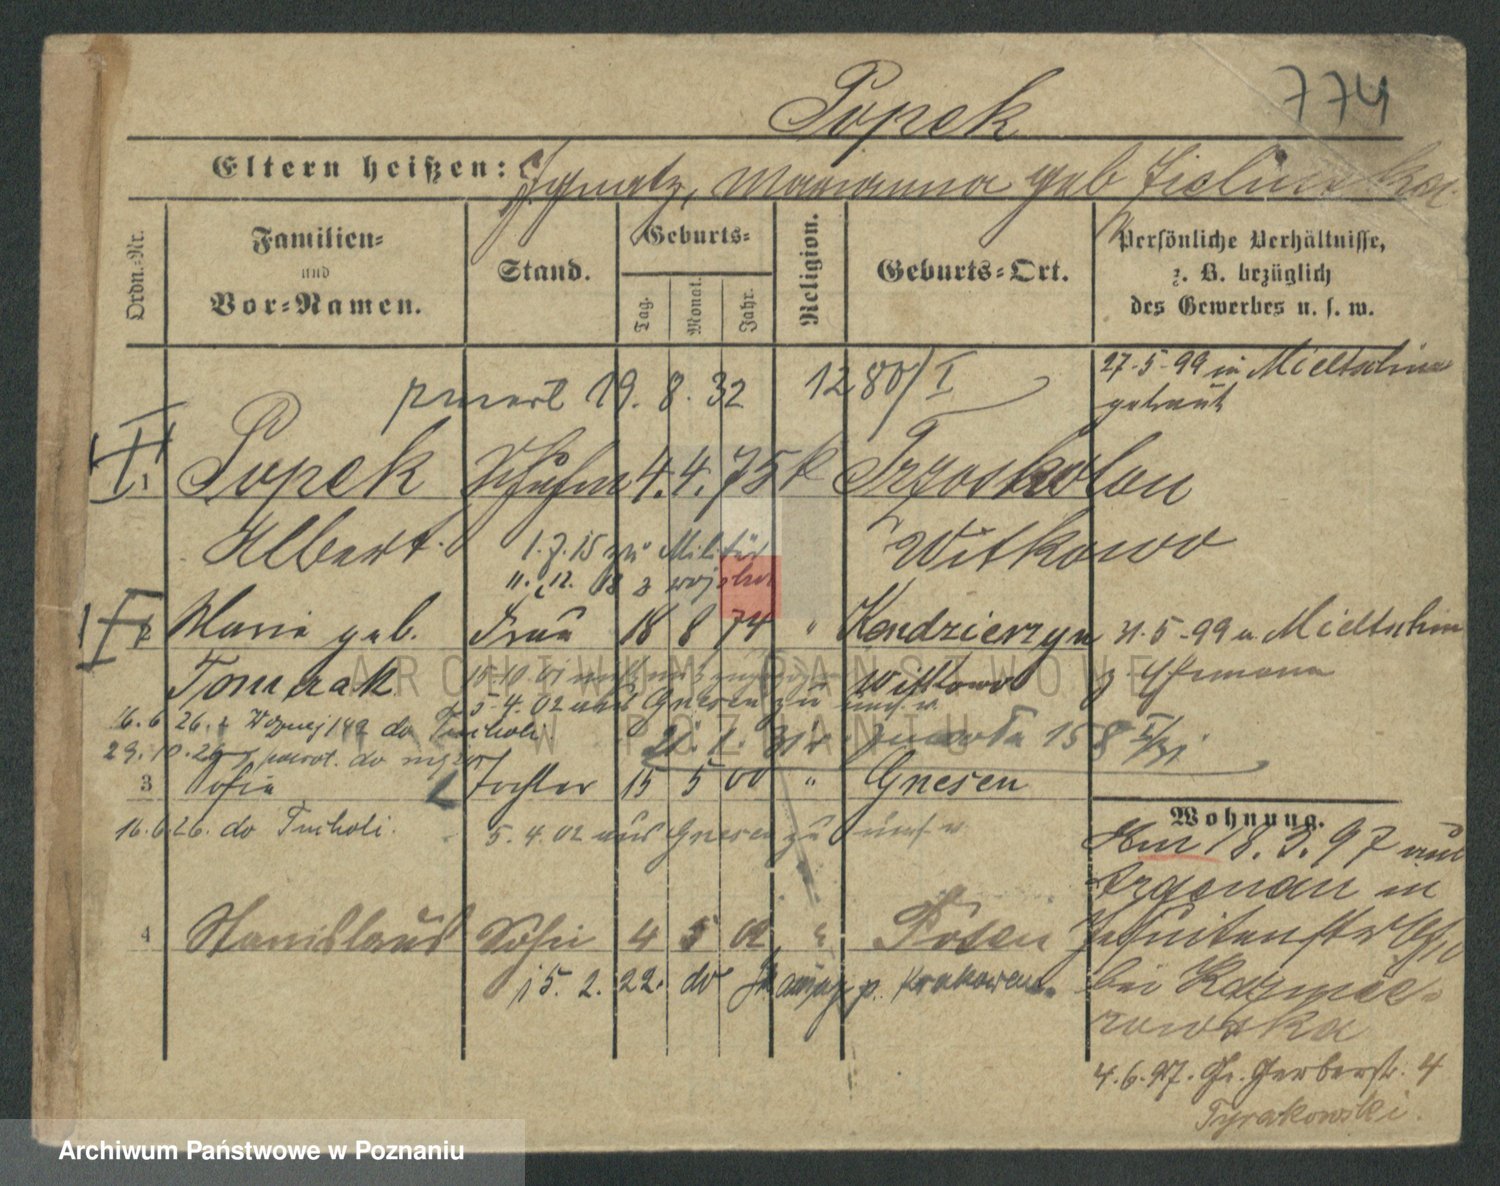 774
Popek
Eltern heißen: Ignatz, Marianna geb
Ordn.-Nr.
Familien- und Vor-Namen.
Stand.
Geburts-
Tag.
Monat.
Jahr.
Religion.
Geburts-Ort.
Persönliche Verhältnisse,
z. B. bezüglich
des Gewerbes u. s. w.
zmarł 19. 8. 32 1280/I
27-5-99 in Mieltschin
getraut
1 Popek 4. 4. 75 k Trzoskolon
Albert. Witkowo
1. 7. 15 zu Militär
11. 12. 18 z wojska
2 Marie geb. Frau 18 8 74 " Kendzierzyn
Tomczak Witkowo
5. 4. 02 aus Gnesen zu
16. 6. 26. do Tucholi
3 Sofia Tochter 15 5 00 " Gnesen
16. 6. 26. do Tucholi.
5. 4. 02 aus Gnesen zu
4 Stanislaus Sohn 4 5 02 " Posen
15. 2. 22. do p. Krakowem
Wohnung.
18. 3. 97 aus
Argenau in
Jesuitenstr
bei Kazmie-
rowska
4. 6. 97. Gr. Gerberstr. 4
Tyrakowski.
ARCHIWUM PAŃSTWOWE
W POZNANIU
Archiwum Państwowe w Poznaniu